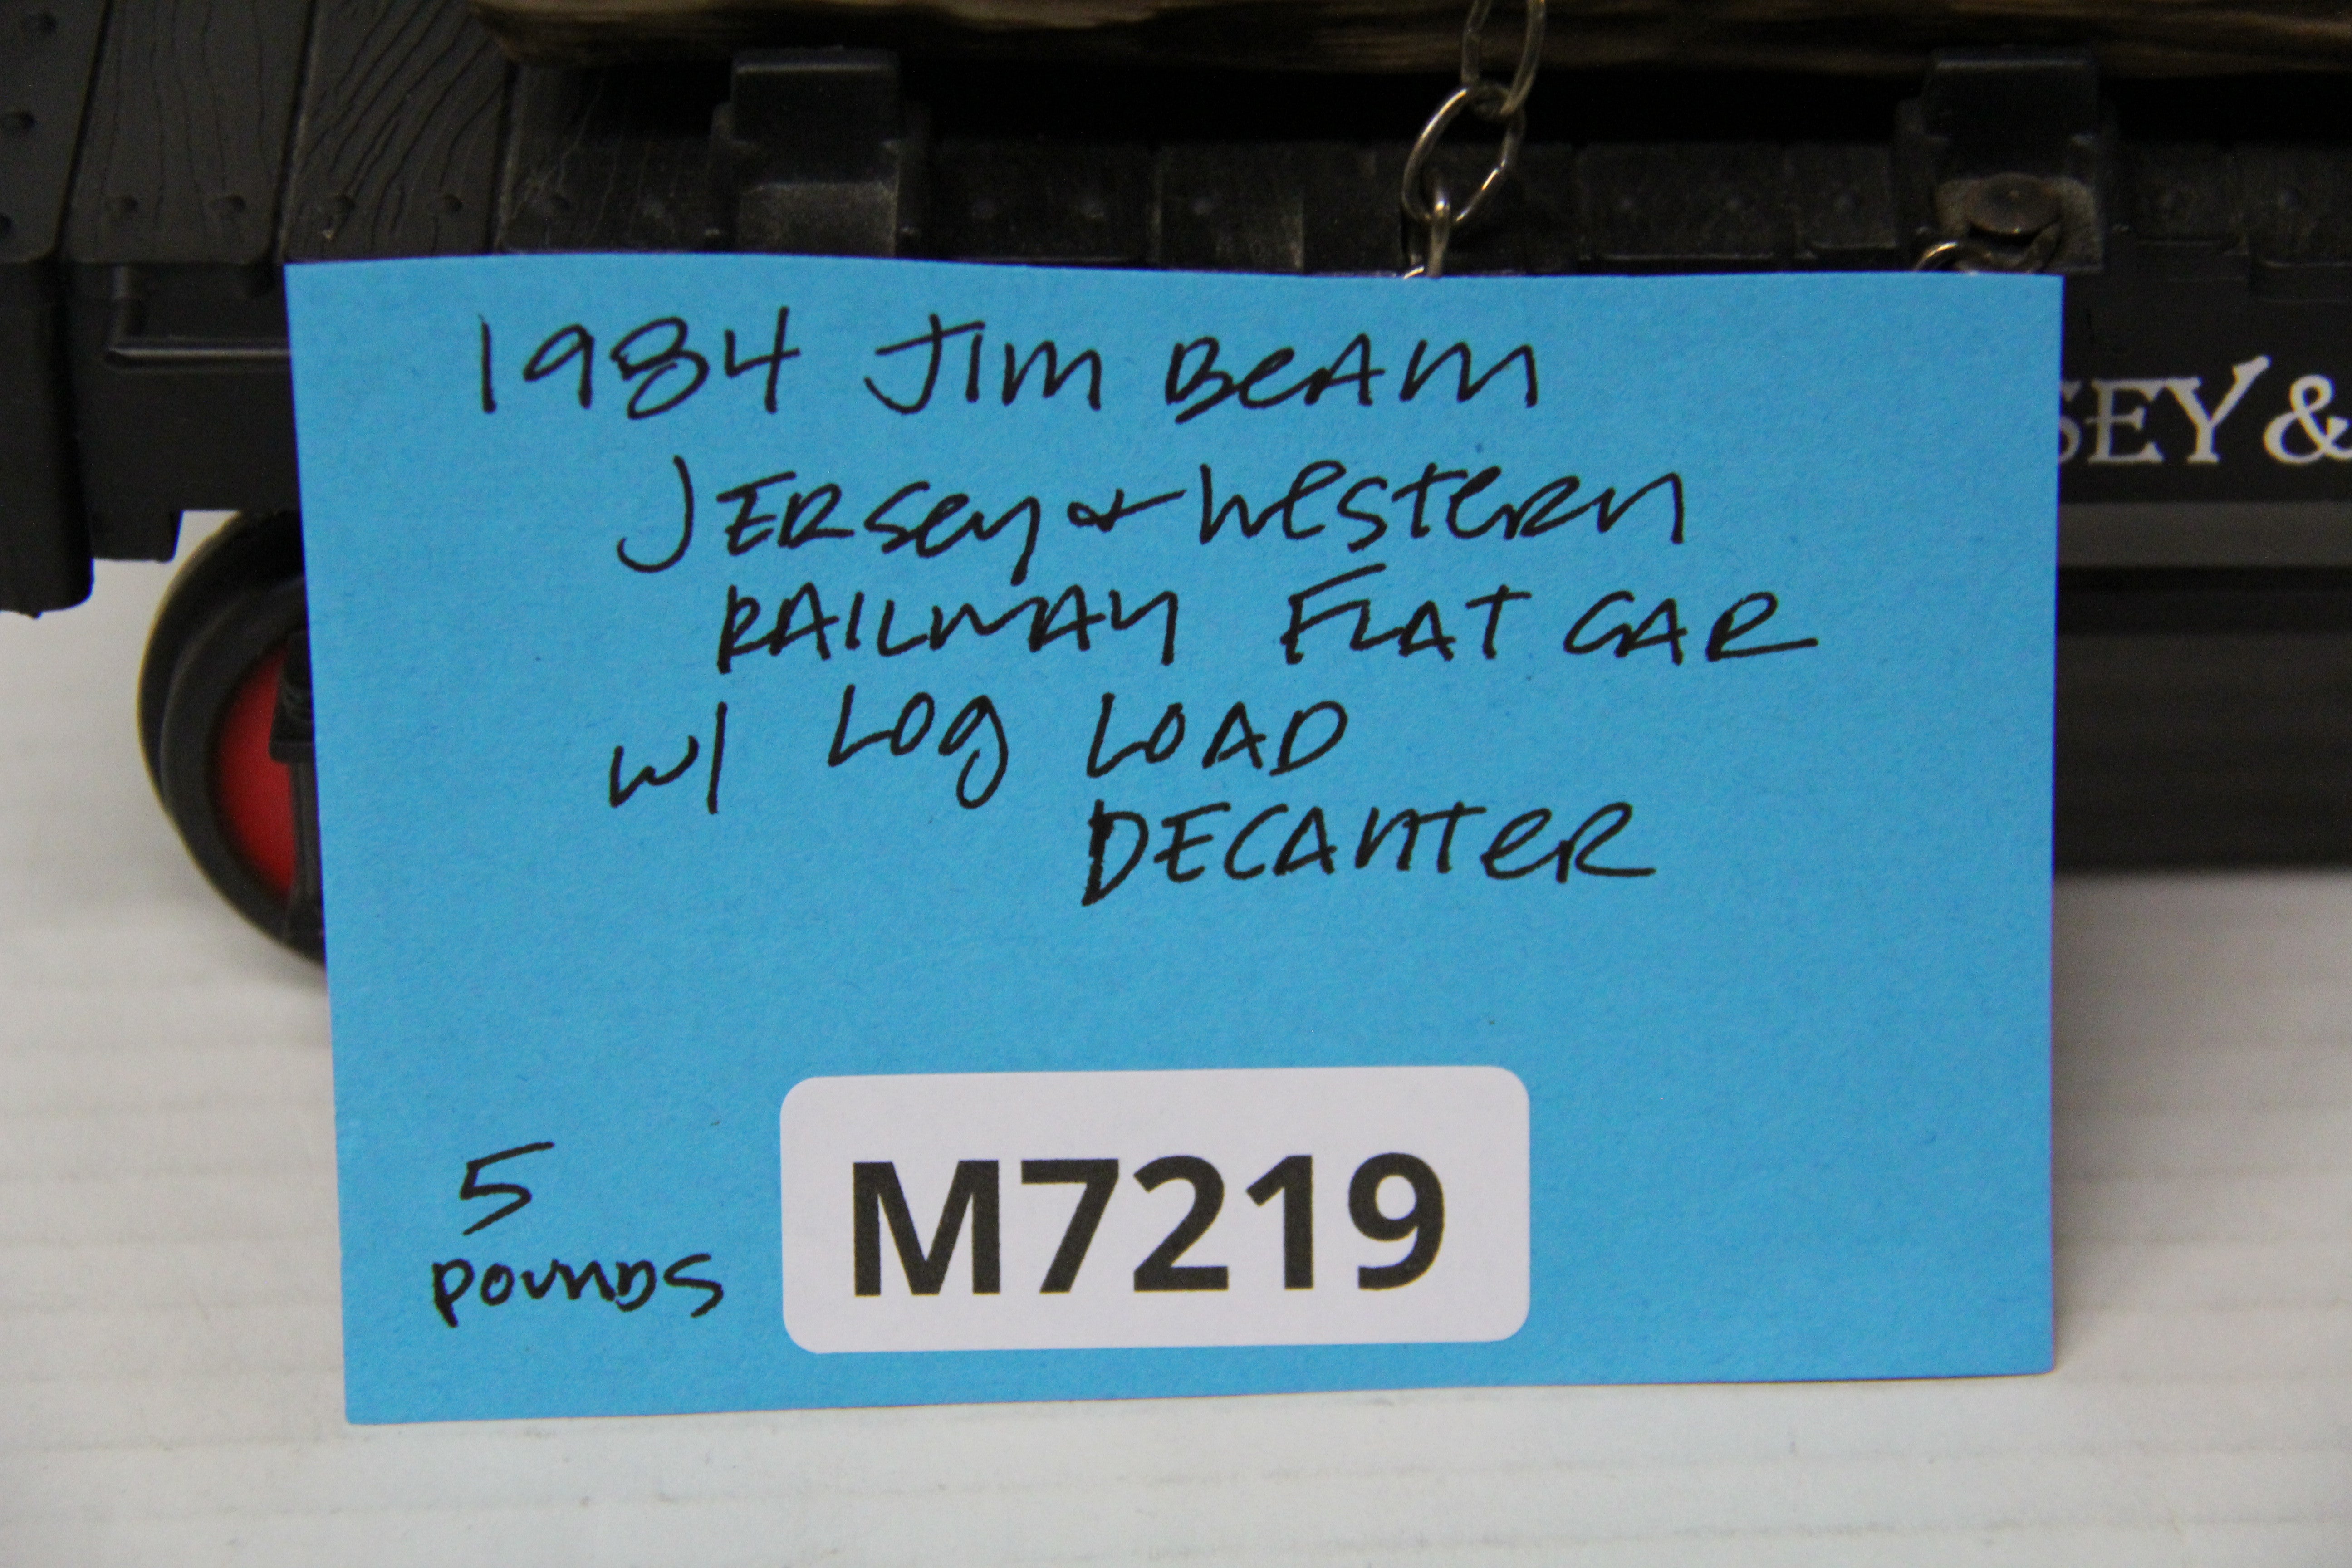 1984 Jim Beam
Jersey & Western
Railway Flat Car
w/ Log Load
Decanter
5
pounds
M7219
SEY &